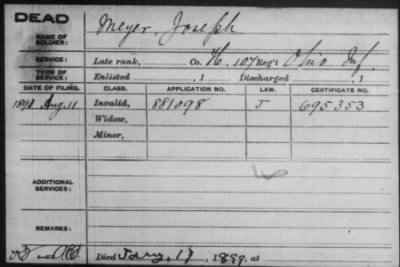 DEAD
NAME OF SOLDIER: Meyer, Joseph
SERVICE: Late rank, Co. H, 107 Reg't Ohio Inf.
TERM OF SERVICE: Enlisted , 1 Discharged , 1
DATE OF FILING. CLASS. APPLICATION NO. LAW. CERTIFICATE NO.
Aug. 11 Invalid, 881098 J 695353
Widow,
Minor,
ADDITIONAL SERVICES:
REMARKS:
Died Jany. 17, 1899, at